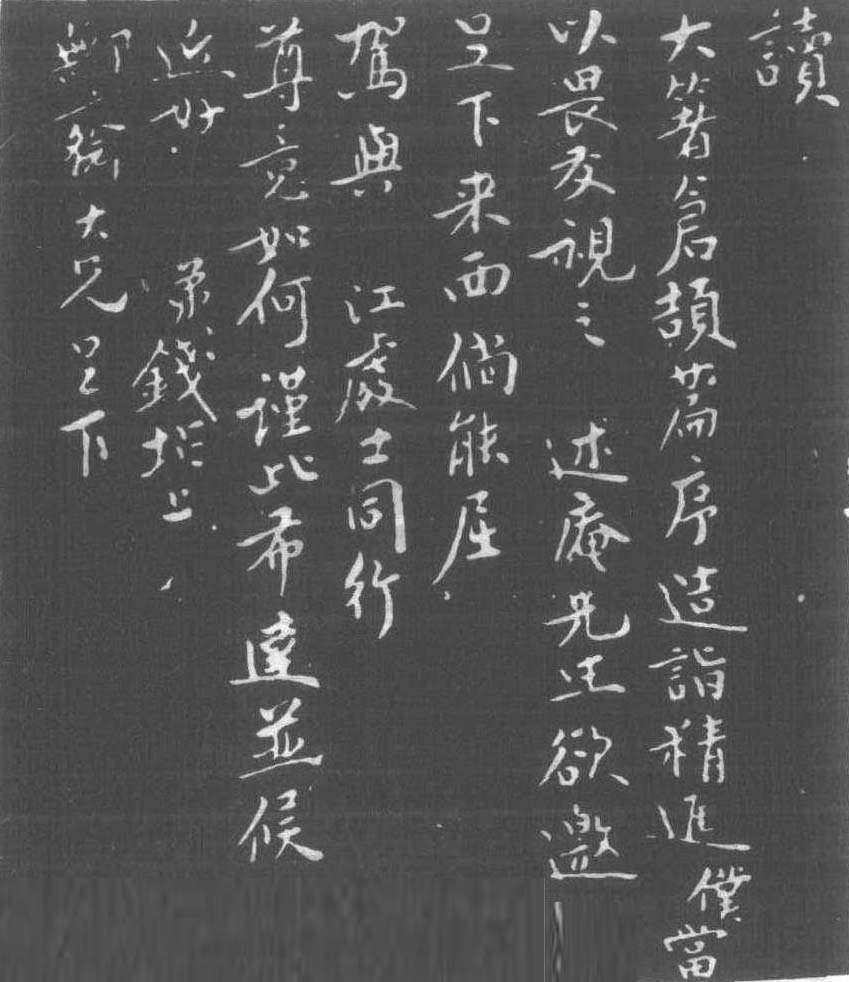 讀
大箸倉頡篇序造詣精進僕當
以畏友視之 述庵先生欲邀
足下来西倘能屈
駕與 江處士同行
尊意如何謹此希達並候
近好 弟錢坫上
大兄足下